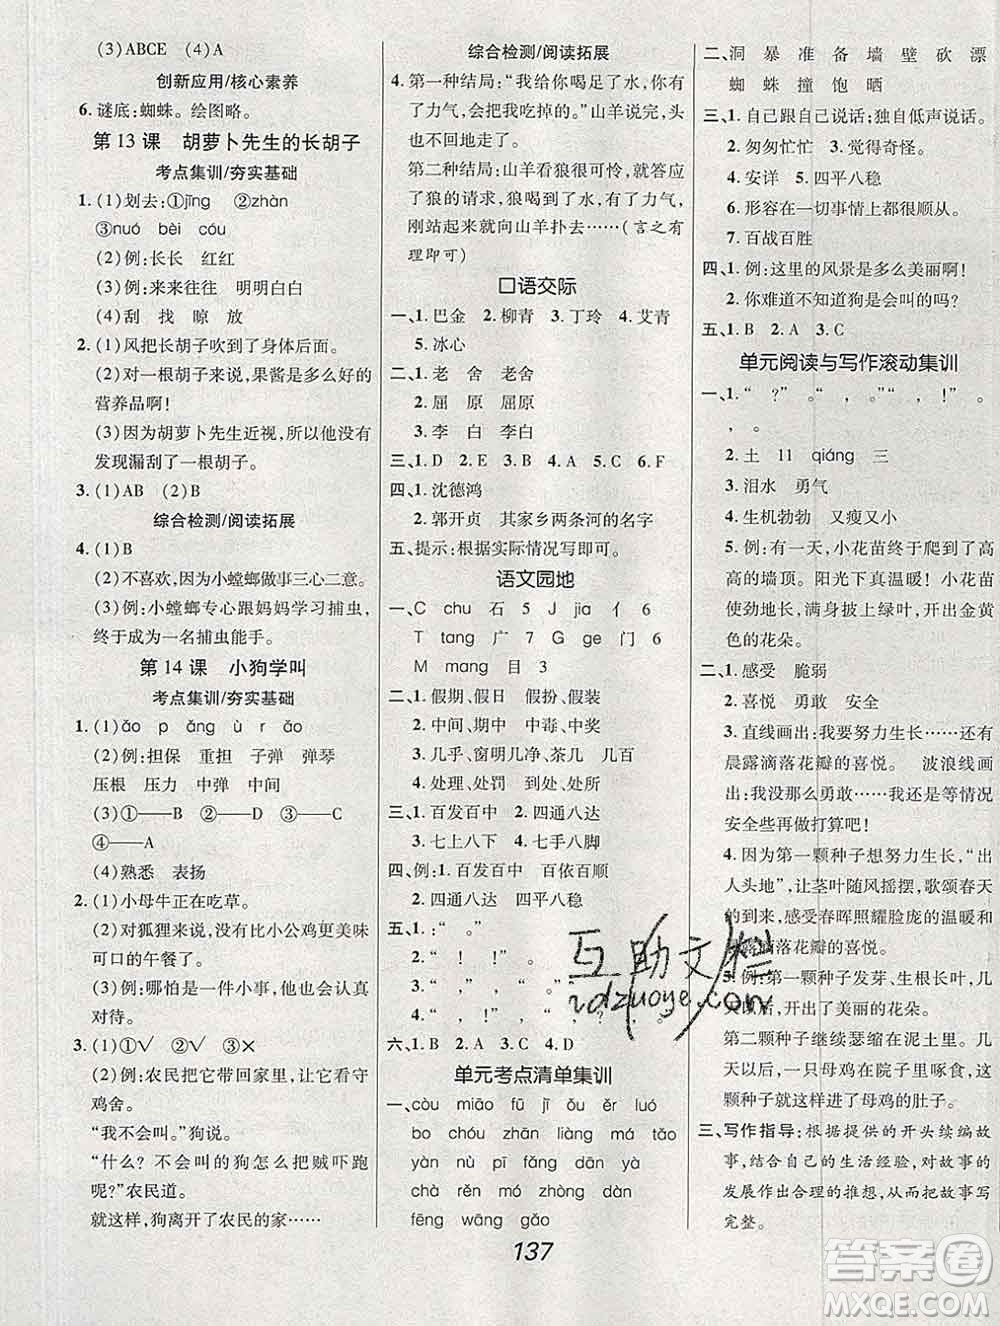 (3)ABCE (4)A
创新应用/核心素养
6. 谜底:蜘蛛。绘图略。
第 13 课 胡萝卜先生的长胡子
考点集训/夯实基础
1. (1)划去:①jīng ②zhàn
③nuó bèi cóu
(2)例:长长 红红
(3)例:来来往往 明明白白
(4)刮 找 晾 放
2. (1)风把长胡子吹到了身体后面。
(2)对一根胡子来说,果酱是多么好的
营养品啊!
(3)因为胡萝卜先生近视,所以他没有
发现漏刮了一根胡子。
3. (1)AB (2)B
综合检测/阅读拓展
4. (1)B
(2)不喜欢,因为小螳螂做事三心二意。
(3)例:小螳螂专心跟妈妈学习捕虫,
终于成为一名捕虫能手。
第 14 课 小狗学叫
考点集训/夯实基础
1. (1)ǎo p ǎng ù r ǎo
(2)例:担保 重担 子弹 弹琴
压根 压力 中弹 中间
(3)①——D ②——B ③——C
④——A
(4)熟悉 表扬
2. (1)小母牛正在吃草。
(2)对狐狸来说,小公鸡可以成为非常
可口的午餐了吧!
(3)例:哪怕是一件小事,他也会认真
对待。
3. (1)①√ ②√ ③×
(2)例:农民把它带回家里,让它看守
鸡舍。
“我不会叫。”狗说。
“什么?不会叫的狗怎么把贼吓跑
呢?”农民道。
就这样,狗离开了农民的家……
综合检测/阅读拓展
4. 第一种结局:“我给你喝足了水,你就
有了力气,会把我吃掉的。”山羊说完,头
也不回地走了。
第二种结局:山羊看狼很可怜,就答应
了狼的请求,狼喝到了水,有了力气,
刚站起来就向山羊扑去……(言之有
理即可)
口语交际
一、1. 巴金 2. 柳青 3. 丁玲 4. 艾青
5. 冰心
二、1. 老 舍 老舍
2. 屈 原 屈原
3. 李 白 李白
三、1. D 2. E 3. A 4. B 5. C 6. F
四、1. 沈德鸿
2. 郭开贞 其家乡两条河的名字
五、提示:根据实际情况写即可。
语文园地
一、C chu 石 5 J jia 亻 6
T tang 广 7 G ge 门 6
M mang 目 3
二、1. 假期、假日 假扮、假装
2. 中间、期中 中毒、中奖
3. 几乎、窗明几净、茶几 几百
4. 处理、处罚 到处、处所
三、1. 百发百中 2. 四通八达
3. 七上八下 4. 七手八脚
四、例:1. 百发百中 百依百顺
2. 四通八达 四平八稳
五、1. :“ 。”
2. “ , ! ”
3. “ ,” ,“ 。”
4. “ , !” “ ?” , 。
六、1. B 2. A 3. C 4. D
单元考点清单集训
一、còu miāo fū jǐ ǒu ěr luó
bo chóu zhān liàng má tǎo
yàn nù pī fǎng dān yà
chà rěn mó zhòng dàn
fēng wāng gǎo
二、洞 暴 准 备 墙 壁 砍 漂
蜘 蛛 撞 饱 晒
三、1. 自己跟自己说话;独自低声说话。
2. 匆匆忙忙 3. 觉得奇怪。
4. 安详 5. 四平八稳
6. 形容在一切事情上都很顺利。
7. 百战百胜
四、1. 例:这里的风景是多么美丽啊!
2. 你难道不知道狗是会叫的吗?
五、1. B 2. A 3. C
单元阅读与写作滚动集训
一、1. “ ?”“ , 。”“ !” 。
, 。
2. 土 11 qiáng 三
3. 泪水 勇气
4. 生机勃勃 又瘦又小
5. 例:有一天,小花苗终于爬到了高
高的墙顶。阳光下真温暖!小花苗
使劲地生长,满身披上绿叶,开出金黄
色的花朵。
二、1. 感受 脆弱
2. 喜悦 勇敢 安全
3. 直线画出:我要努力生长……和
晨露滴落花瓣的喜悦。 波浪线画
出:我没那么勇敢……还是等情况
安全些再做打算吧!
4. 因为第一颗种子想努力生长,“出
人头地”,让茎叶随风摇摆,歌颂春天
的到来,感受春晖照耀脸庞的温暖和
晨露滴落花瓣的喜悦。
5. 例:第一颗种子发芽、生根长叶,几
天以后,开出了美丽的花朵。
第二颗种子继续瑟缩在泥土里。几
天以后,一只母鸡在院子里啄食,这
颗种子就这样进了母鸡的肚子。
三、写作指导:根据提供的开头续编故
事,结合自己的生活经验,对故事的
发展作出合理的推想,从而把故事写
完整。
互助文栏
zdzuoye.com
137
答案圈
MXQE.COM